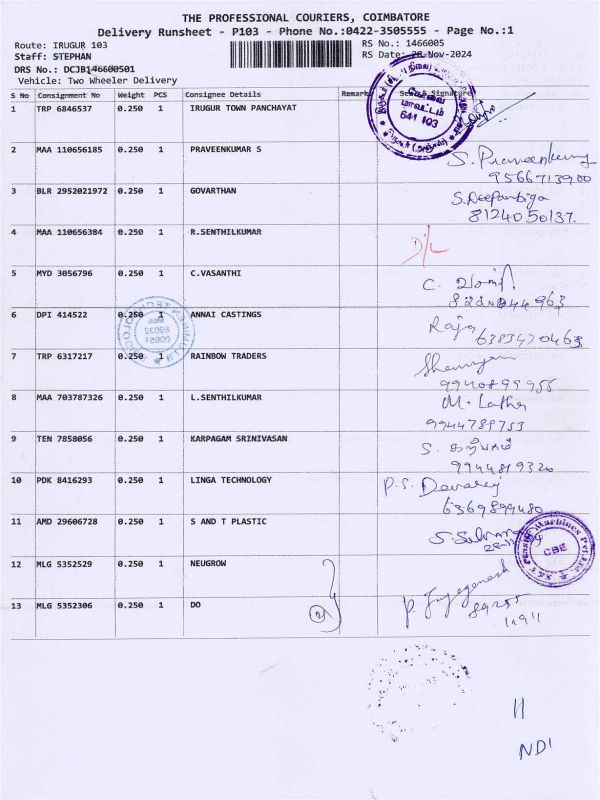 THE PROFESSIONAL COURIERS, COIMBATORE
Delivery Runsheet - P103 - Phone No.:0422-3505555 - Page No.:1
Route: IRUGUR 103
RS No.: 1466005
Staff: STEPHAN
RS Date: 28-Nov-2024
DRS No.: DCJB146600501
Vehicle: Two Wheeler Delivery
S No Consignment No Weight PCS Consignee Details Remark Seal & Signature
1 TRP 6846537 0.250 1 IRUGUR TOWN PANCHAYAT
மாவட்டம்
641 103
2 MAA 110656185 0.250 1 PRAVEENKUMAR S S. Praveenkumar
9566713900
3 BLR 2952021972 0.250 1 GOVARTHAN S. Deepanbiga
8124050137.
4 MAA 110656384 0.250 1 R.SENTHILKUMAR D/L
5 MYD 3056796 0.250 1 C.VASANTHI C.
6 DPI 414522 0.250 1 ANNAI CASTINGS Raja
6383470463
7 TRP 6317217 0.250 1 RAINBOW TRADERS
9940899955
8 MAA 703787326 0.250 1 L.SENTHILKUMAR M. Latha
9944789753
9 TEN 7858056 0.250 1 KARPAGAM SRINIVASAN S. கற்பகம்
9944819320
10 PDK 8416293 0.250 1 LINGA TECHNOLOGY P.S. Devaraj
6369899480
11 AMD 29606728 0.250 1 S AND T PLASTIC
CBE
12 MLG 5352529 0.250 1 NEUGROW
13 MLG 5352306 0.250 1 DO P. Jayaganesh
89255
11911
11
NDI